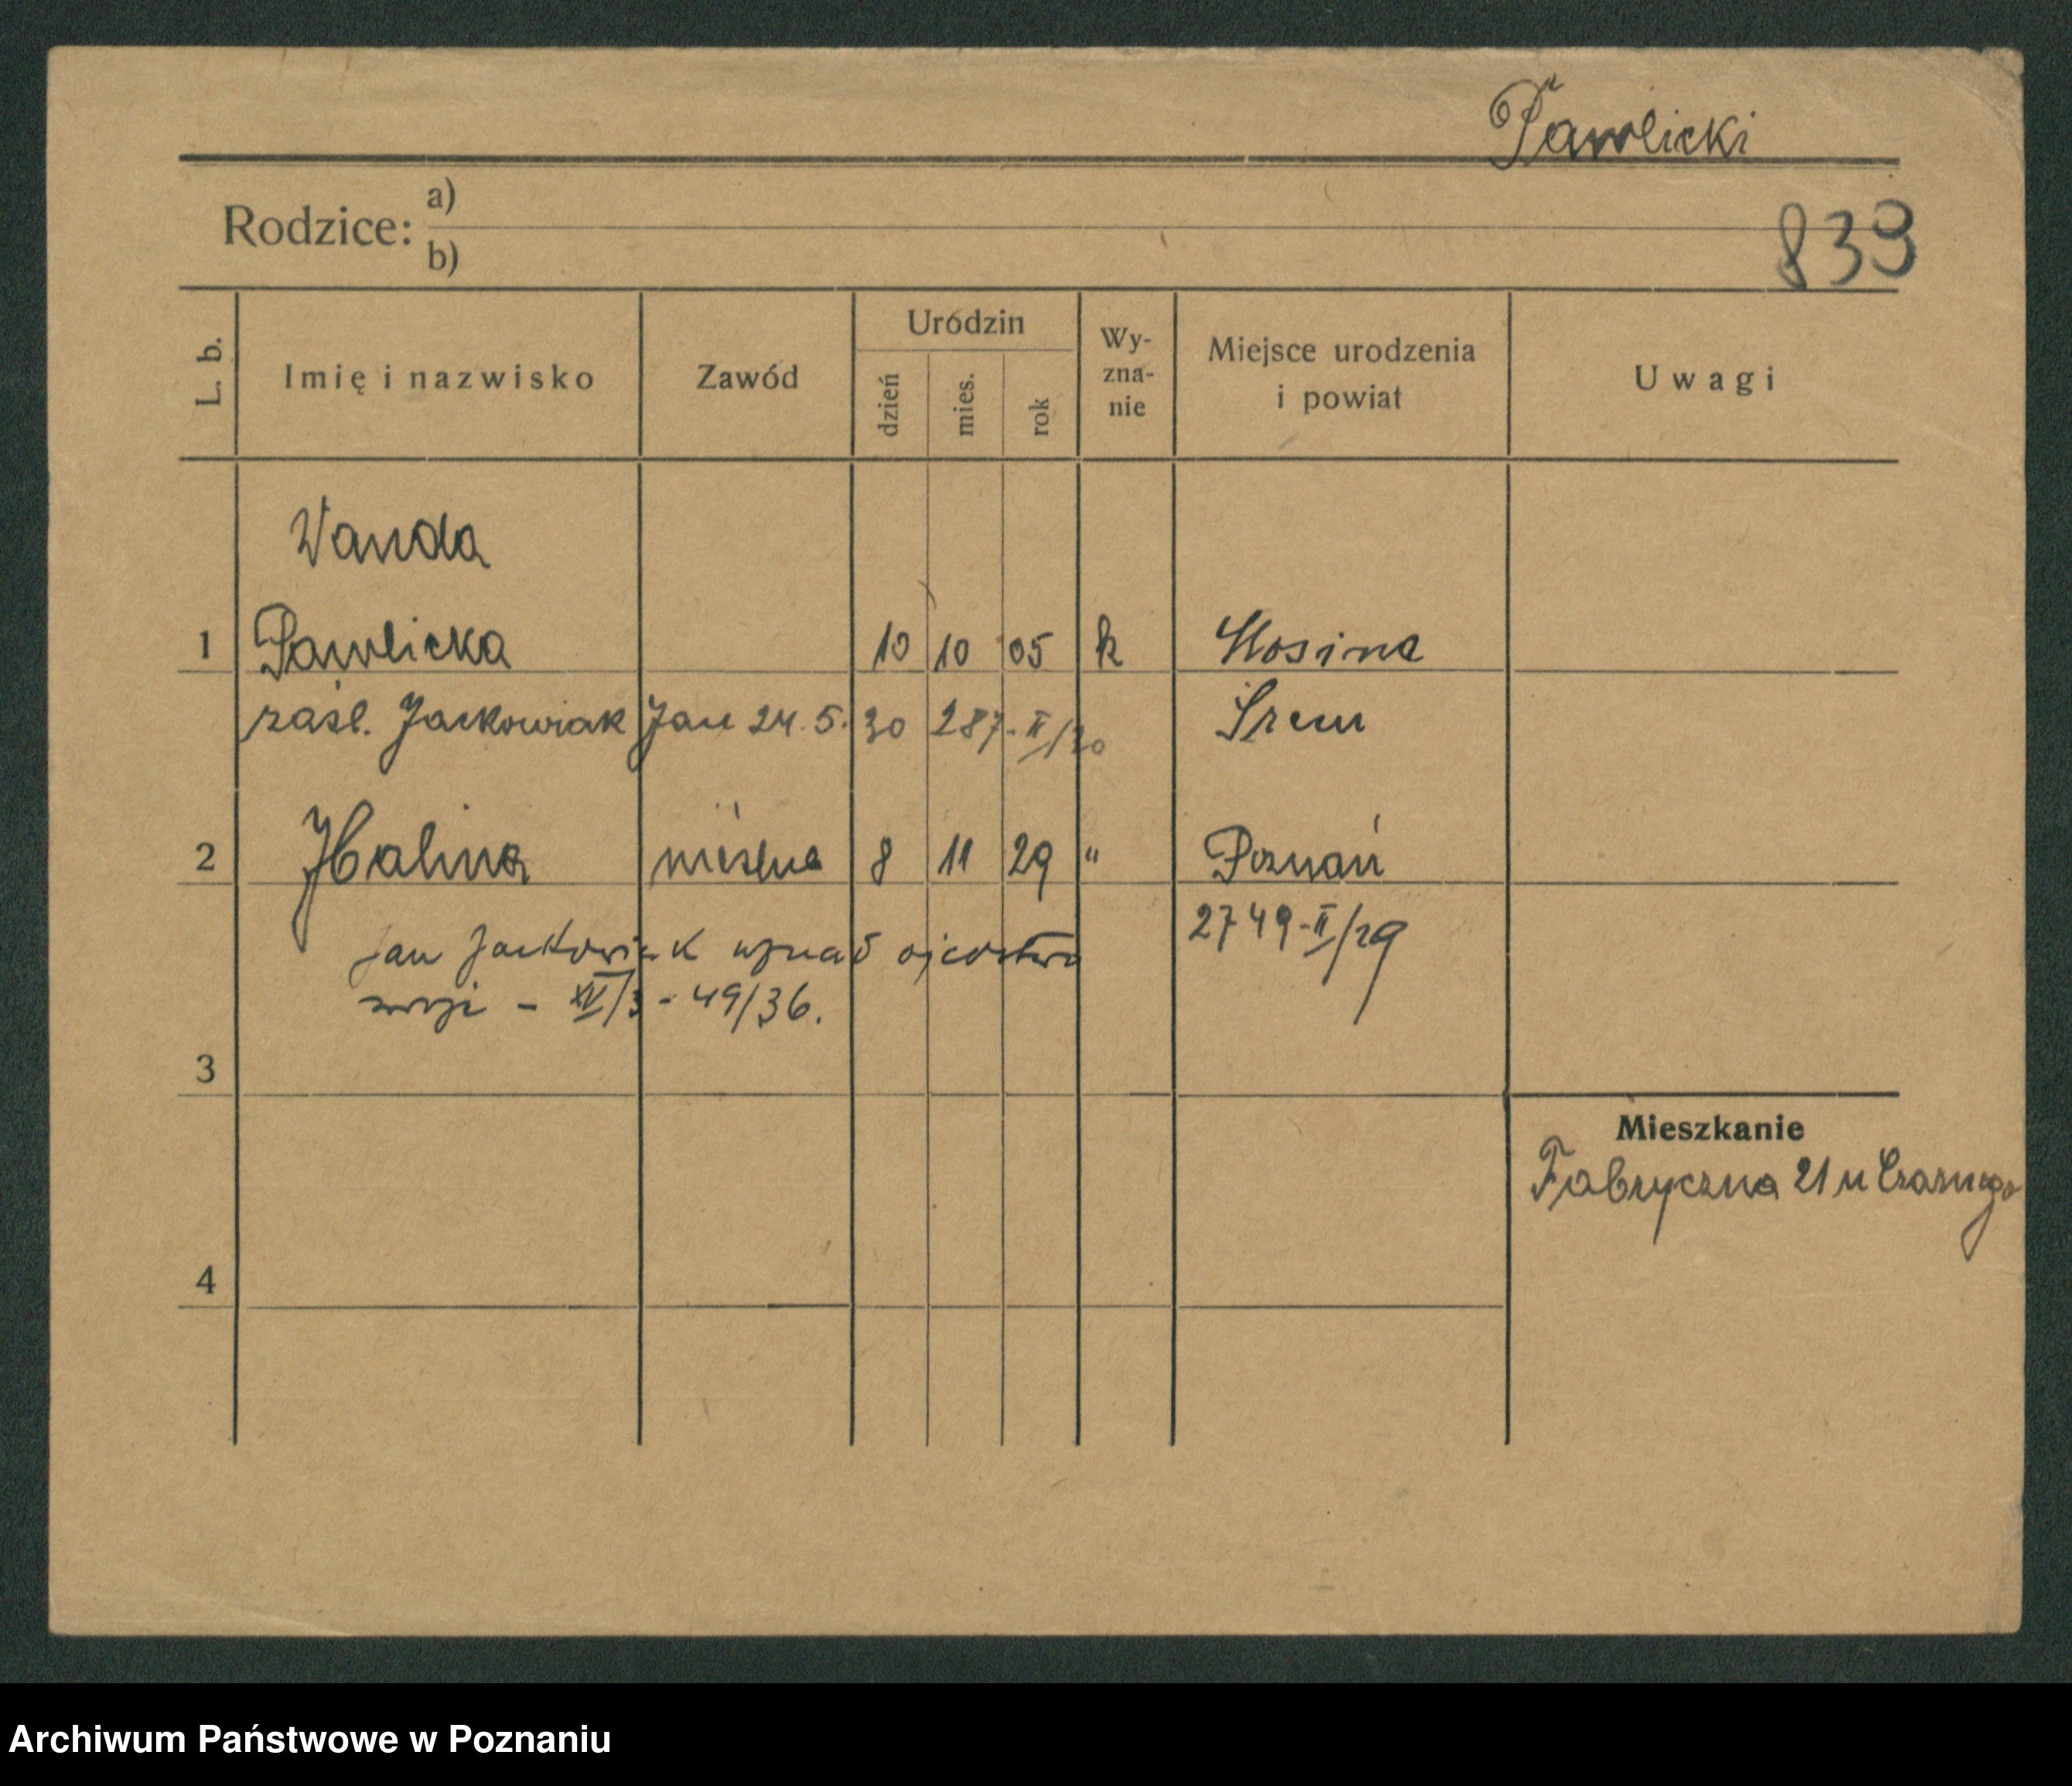 Pawlicki
Rodzice: a)
b)
839
L. b. Imię i nazwisko Zawód Urodzin dzień mies. rok Wy-zna-nie Miejsce urodzenia i powiat Uwagi
Wanda
1 Pawlicka 10 10 05 k Mosina
zaśl. Jackowiak Jan 24.5.30 287-II/30 Śrem
2 Halina nieślna 8 11 29 " Poznań
2749-II/29
Jan Jackowiak uznał ojcostwo
- XV/3 - 49/36.
3
Mieszkanie
Fabryczna 21 u Czarnego
4
Archiwum Państwowe w Poznaniu